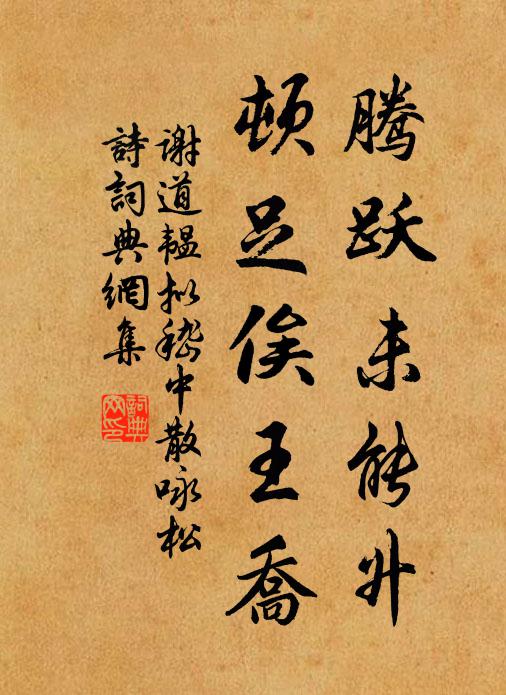 腾跃未能升
顿足俟王乔
谢道韫拟嵇中散咏松
詩詞典網集
詞典网印